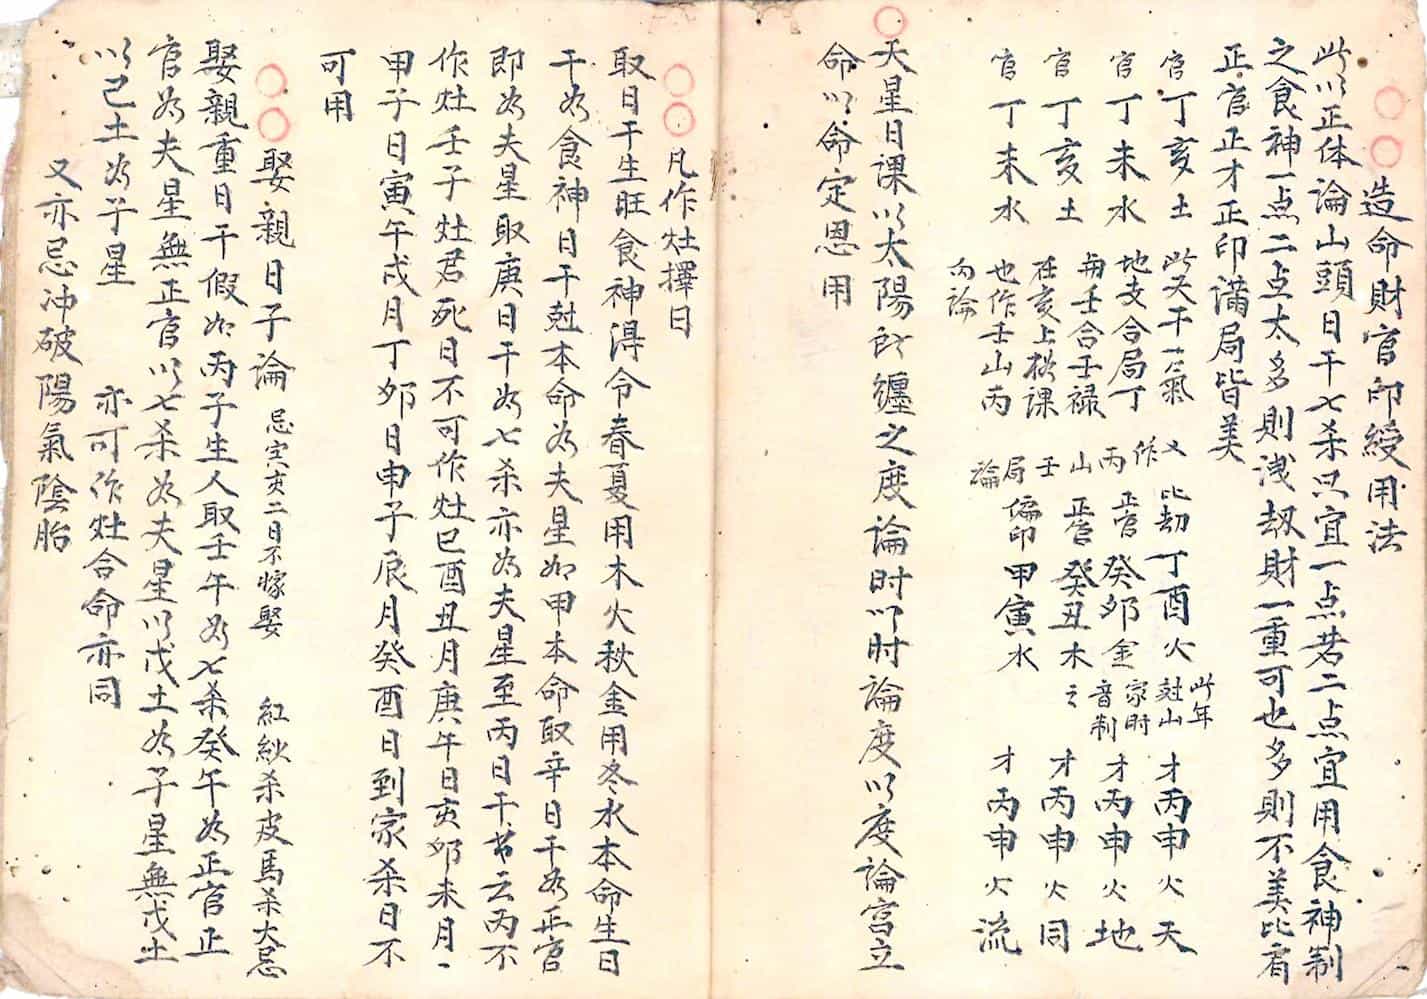 造命財官印綬用法
此以正体論山頭日干七杀只宜一点若二点宜用食神制
之食神一点二点太多則洩劫財一重可也多則不美比肩
正官正才正印滿局皆美
官丁亥土
官丁未水
官丁亥土
官丁未水
此天干一氣
地支合局丁
與壬合壬禄
在亥上格課
也作壬山丙
向論
又作丙山壬局論
比劫丁酉火
正官癸卯金
正官癸丑木
偏印甲寅水
此年
尅山
家时
音制
之
才丙申火天
才丙申火地
才丙申火同
才丙申火流
天星日課以太陽所纏之度論时以时論度以度論宮立
命以命定恩用
凡作灶擇日
取日干生旺食神得令春夏用木火秋金用冬水本命生日
干為食神日干尅本命為夫星如甲本命取辛日干為正官
即為夫星取庚日干為七杀亦為夫星至丙日干书云丙不
作灶壬子灶君死日不可作灶巳酉丑月庚午日亥卯未月
甲子日寅午戌月丁卯日申子辰月癸酉日到家杀日不
可用
娶親日子論 忌寅亥二日不嫁娶 紅紗杀皮馬杀大忌
娶親重日干假如丙子生人取壬午為七杀癸午為正官正
官為夫星無正官以七杀為夫星以戊土為子星無戊土
以己土為子星 亦可作灶合命亦同
又亦忌冲破陽氣陰胎